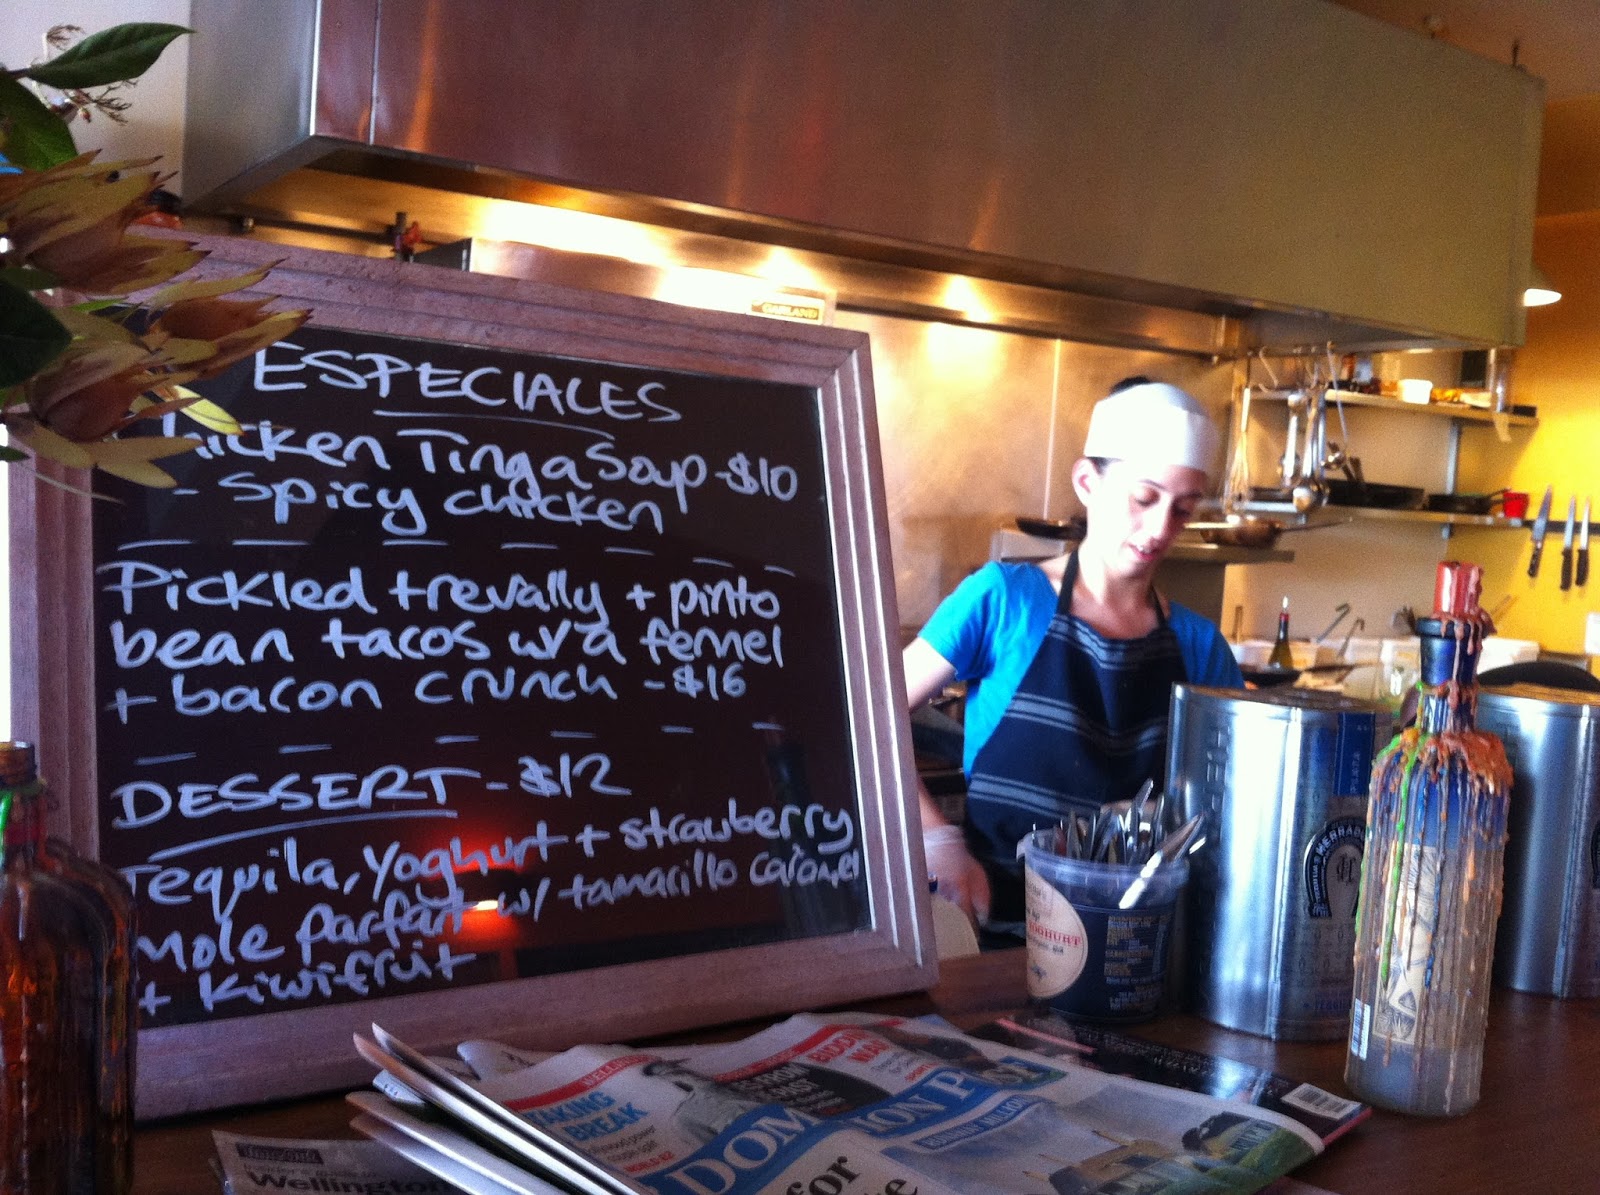 ESPECIALES
hicken Tinga Soup - $10
- Spicy chicken
Pickled trevally + pinto
bean tacos w/ a fennel
+ bacon crunch - $16
DESSERT - $12
Tequila, Yoghurt + strawberry
mole parfait w/ tamarillo caramel
+ kiwifruit
GARLAND
YOGHURT
HERRADURA
TAKING
BREAK
DOMINION POST
for
Wellington